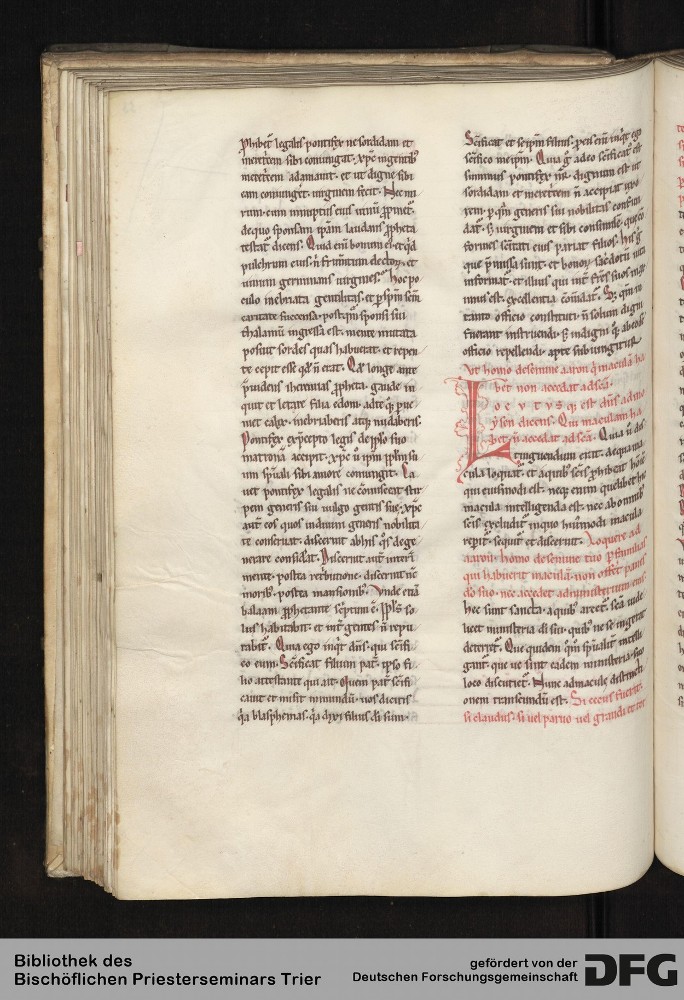 phibet legalis pontifex ne sordidam et
meretricem sibi coniungat. xpc ingentib;
meretricem adamauit. et ut digne sibi
eam coniungeret. uirginem fecit. Nec mi
rum. cum innuptus eius uinum
de quo sponsam ipsam laudans ppheta
testat dicens. Quid enim bonum ei. et qd
pulchrum eius. n frumentum electorum. et
uinum germinans uirgines. hoc po
culo inebriata gentilitas. et
caritate succensa. postqm sponsi sui
thalamum ingressa est. mente mutata
posuit sordes quas habuerat. et repen
te cepit esse qd n erat. longe ante
puidens iheremias ppheta. gaude in
quit et letare filia edom. ad te q pue
niet calix. inebriaberis atq; nudaberis.
Pontifex ex pcepto legis de ipso suo
matrona accipit. xpc u ipsum
num spuali sibi amore coniungit. Ca
uet pontifex legalis ne comisceat stir
pem generis sui uulgo gentis sue. xpc
aut eos quos in diuini generis nobilita
te conseruat. discernit ab his qs dege
nerare considat. Discernit aut interi
mente. postea retributione. discernit nc
morib;. postea mansionib;. Vnde etia
balaam pphetante scriptum e. ppls so
lus habitabit. et int gentes n repu
tabit. Quia ego inqt dns. qui scifi
co eum. Scificat filium pat. ipso fi
lio attestante qui ait. Quem pat scifi
cauit et misit in mundum. uos dicitis
qa blasphemas. qa dixi filius di sum.
Scificat et seipsum filius. p eis enim inqt ego
scifico meipsum. Quia g adeo scificat est
summus pontifex nr. dignum est ut
sordidam et meretricem n accipiat uxo
rem. p qm generis sui nobilitas confun
dat. s; uirginem et sibi consimilem. que
formes sciitati eius pariat filios. his g
que pmissa sunt. et honor sacdotum uita
informat. et illius qui int fres suos mag
nus est. excellentia comdat. S; qm in
tanto officio constituti. n solum digni
fuerant instruendi. s; indigni q; ab eode
officio repellendi. apte subiungitur
Vt homo de semine aaron q macula ha
buit non accedat ad sca.
Locutus q; est dns ad mo
ysen dicens. Qui maculam ha
bet. n accedat ad sca. Quia u dis
tinguendum erit. de qua ma
cula loquat. et a quib; scis phibeat homi
qui eiusmodi est. neq; enim quelibet hic
macula intelligenda est. nec ab omnib;
scis excludit in quo huiusmodi macula
reperit. sequit et discernit. Loquere ad
aaron. homo de semine tuo p familias
qui habuerit maculam. non offeret panes
do suo. nec accedet ad ministerium eius.
hec sunt sancta. a quib; arcet. sca inde
licet ministeria di sui. quib; ne se ingerat
deterret. Que quidem qm spualit intelli
gant. que ue sint eadem ministeria suo
loco discutiet. Nunc ad macule distincti
onem transeundum est. Si cecus fuerit.
si claudus. si uel paruo uel grandi et tor
Bibliothek des
Bischöflichen Priesterseminars Trier
gefördert von der
Deutschen Forschungsgemeinschaft
DFG